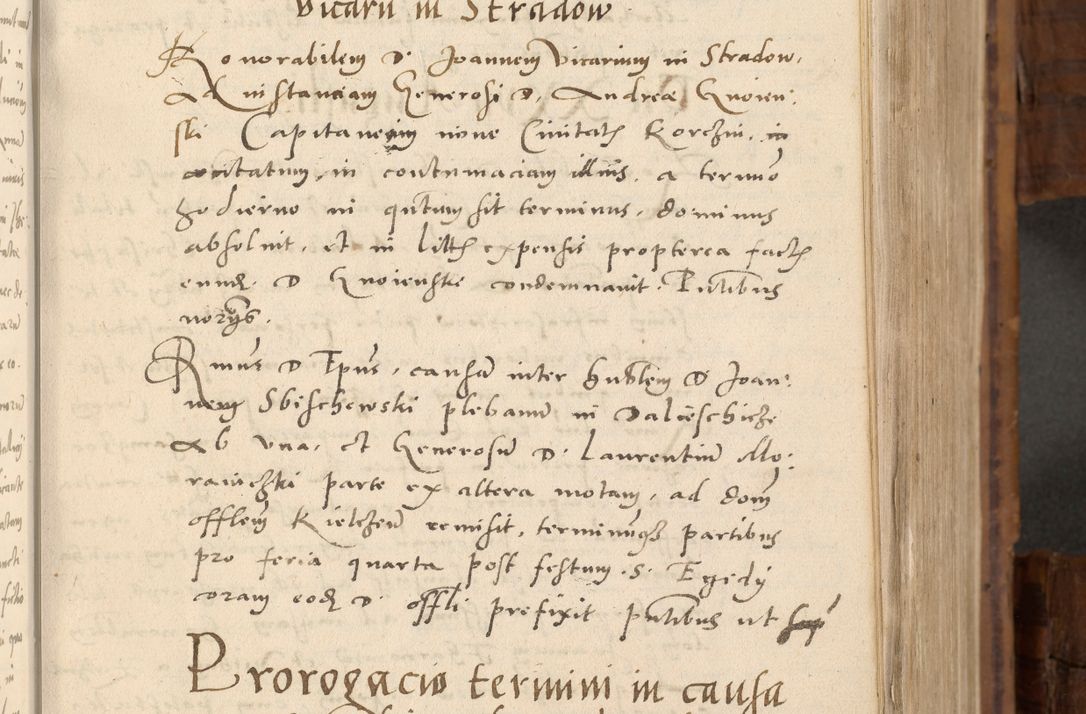 Vicarii in Stradow
Honorabilem D. Joannem Vicarium in Stradow.
Ad instanciam Generosi D. Andreæ Gnoien:
ski Capitaneum nove Civitatis Korczin.
citatum, in contumaciam illius. a termino
hodierno ni qntum sit terminus. dominus
absolvit. et in litis expensis propterea factis
eundem D Gnoienski condemnavit. Pntibus
Rmus D Epus. causam inter Hnblem D Joan:
nem Sbischewski plebanum in Dalieschicze
ab una. et Generosum D. Laurentium Mo:
rawiczki parte ex altera motam. ad dom
offlem Kielczen remisit, terminumqz partibus
pro feria quarta post festum .S. Egedij
coram eod D. offli prefixit pntibus ut sup
Prorogacio termini in causa